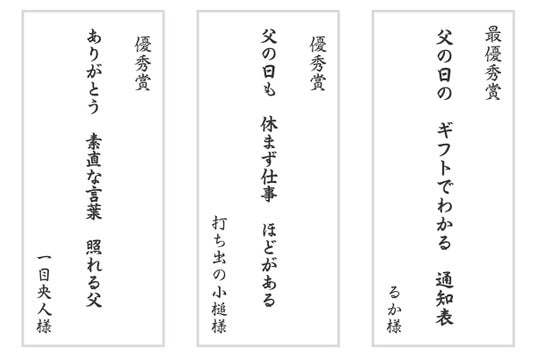 最優秀賞
父の日の　ギフトでわかる　通知表
るか様
優秀賞
父の日も　休まず仕事　ほどがある
打ち出の小槌様
優秀賞
ありがとう　素直な言葉　照れる父
一目央人様